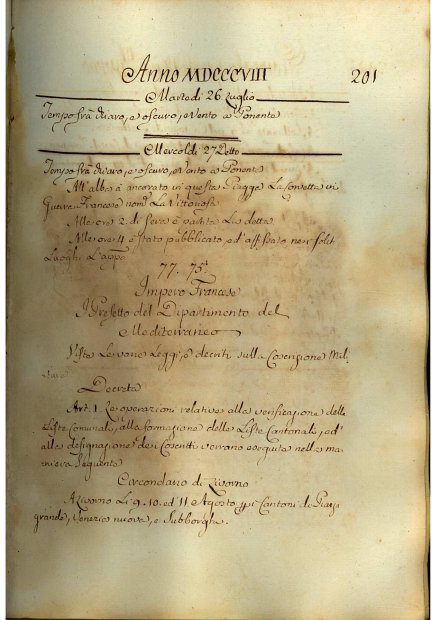 Anno MDCCCVIII 201
Martedì 26 Luglio
Tempo frà chiaro, e oscuro, e Vento a Ponente
Mercoldì 27 Detto
Tempo frà chiaro, e oscuro, e Vento a Ponente
All'alba à ancorato in questa Piagge La Corvetta in
Guerra Francese nom.ta La Vittoriosa
Alle ore 2. di Sera è partita La detta
Alle ore 4 è stato pubblicato, ed affissato ne soliti
Luoghi L'app.o
77. 75.
Impero Francese
Il Prefetto del Dipartimento del
Mediterraneo
Viste Le varie Leggi, e decreti sulla Coscrizione Mil:
itare
Decreta
Art. 1. Le operazioni relative alla verificazione delle
Liste Comunali, alla formazione delle Liste Cantonali, ed'
alla designazione de i Coscritti verrano eseguite nella ma:
niera Seguente
Circondario di Livorno
A Livorno Li 9. 10. ed 11 Agosto pi Cantoni di Piazza
grande, Venezia nuova, e Subborghi.